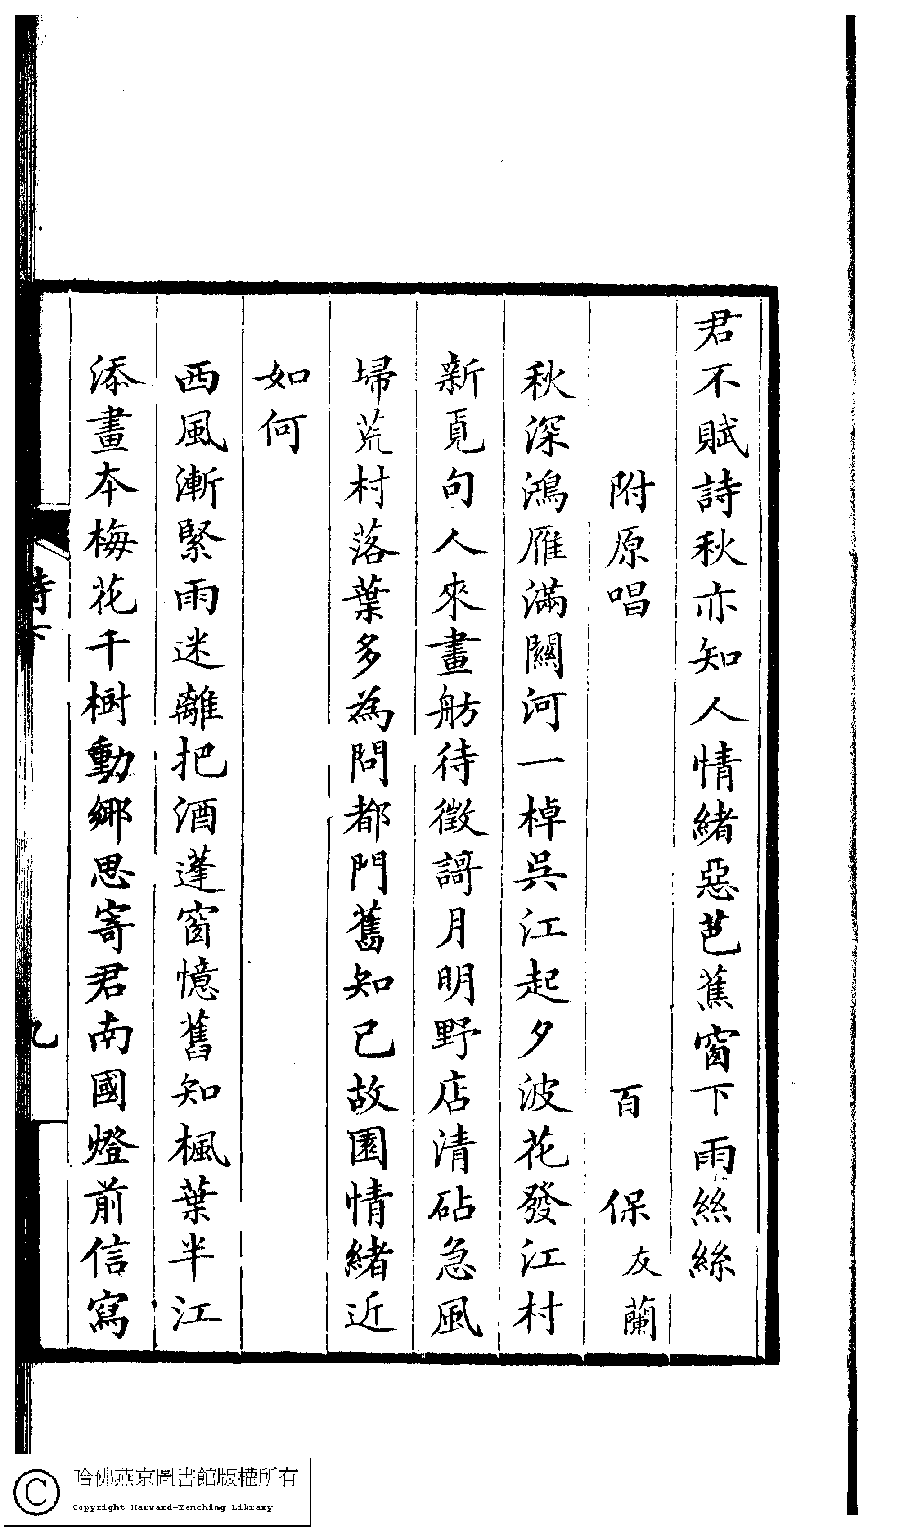 君不賦詩秋亦知人情緒惡芭蕉窗下雨絲絲
附原唱 百保友蘭
秋深鴻雁滿關河一棹吳江起夕波花發江村
新覓句人來畫舫待徵謌月明野店清砧急風
埽荒村落葉多為問都門舊知已故園情緒近
如何
西風漸緊雨迷離把酒蓬窗憶舊知楓葉半江
添畫本梅花千樹動鄉思寄君南國燈前信寫
詩下
九
哈佛燕京圖書館版權所有
Copyright Harvard-Yenching Library